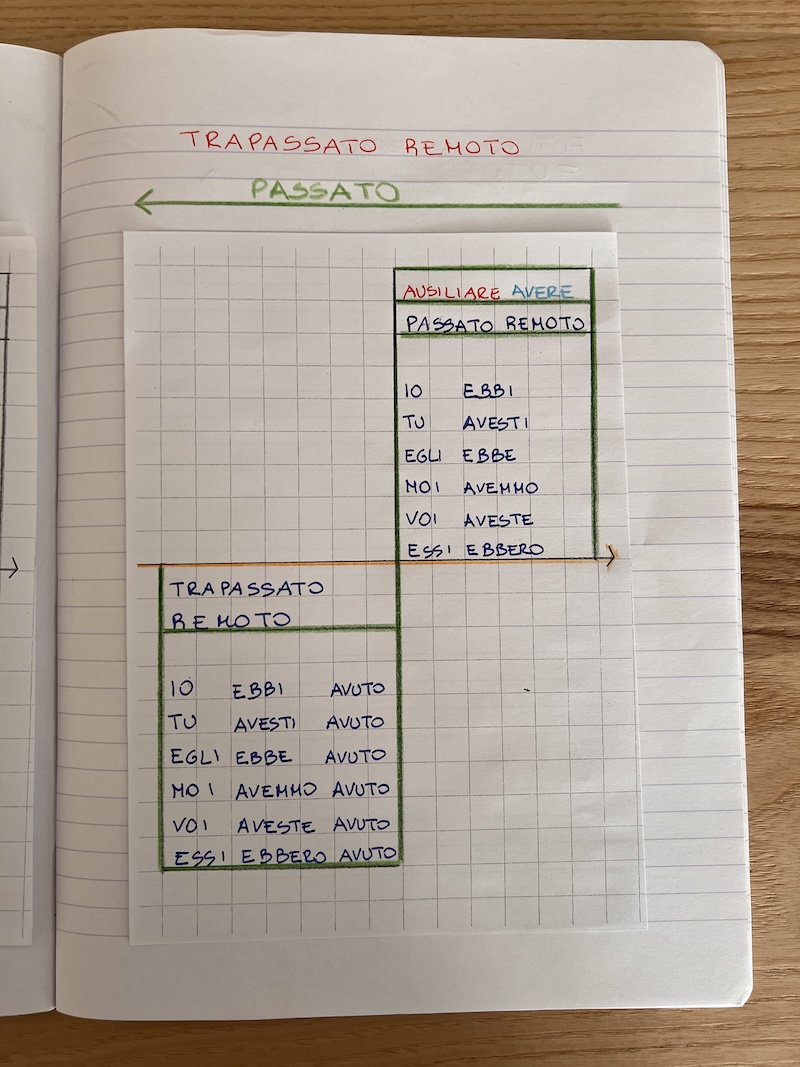 TRAPASSATO REMOTO
PASSATO
AUSILIARE AVERE
PASSATO REMOTO
IO EBBI
TU AVESTI
EGLI EBBE
NOI AVEMMO
VOI AVESTE
ESSI EBBERO
TRAPASSATO
REMOTO
IO EBBI AVUTO
TU AVESTI AVUTO
EGLI EBBE AVUTO
NOI AVEMMO AVUTO
VOI AVESTE AVUTO
ESSI EBBERO AVUTO